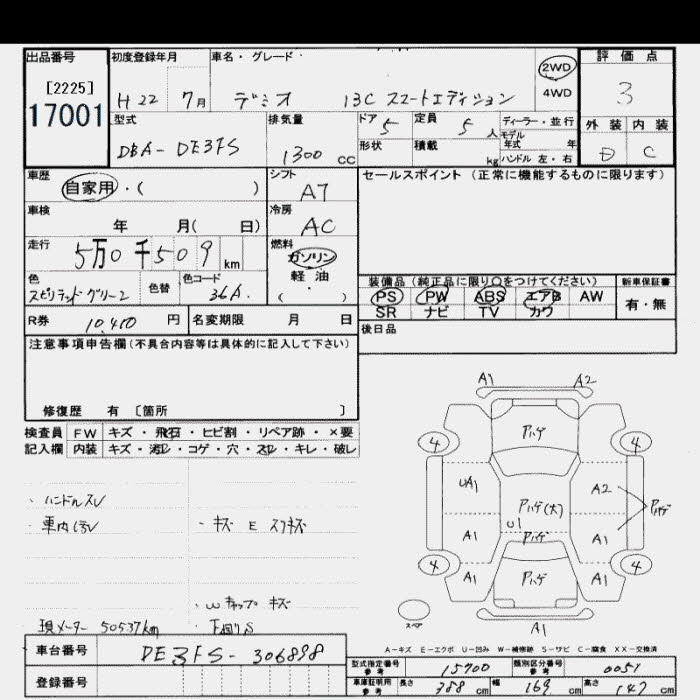 出品番号 初度登録年月 車名・グレード 評価点
[2225]
17001
H22 7月 デミオ 13C スマートエディション 2WD 4WD 3
型式 排気量 ドア 5 定員 5人 ディーラー・並行 外装 内装
モデル年式 年
DBA-DE3FS 1300 CC 形状 積載 kg ハンドル 左・右 D C
車歴 シフト セールスポイント(正常に機能するものに限ります)
自家用・( ) A7
車検 冷房
年 月( 日) AC
走行 燃料
5万0千509km ガソリン
軽・油 装備品(純正品に限り○をつけてください) 新車保証書
色 色替 色コード PS PW ABS エアB AW 有・無
スピリテッドグリーン 36A ( ・ ) SR ナビ TV カワ
R券 10,410円 名変期限 月 日 後日品
注意事項申告欄(不具合内容等は具体的に記入して下さい)
修復歴 有 [箇所 ]
検査員 FW キズ・飛石・ヒビ割・リペア跡・×要
記入欄 内装 キズ・汚レ・コゲ・穴・スレ・キレ・破レ
A1 A2
4 パハゲ 4
UA1 パハゲ(大) A2 パハゲ
U1
A1 パハゲ A1
4 A1 パハゲ A1 4
スペア A1
・ハンドルスレ
・車内汚レ ・キズ E スリキズ
・Wキャップ キズ
現メーター 50537km ・下廻りS
A-キズ E-エクボ U-凹み W-補修跡 S-サビ C-腐食 XX-交換済
車台番号 DE3FS-306898
型式指定番号 参考 15700 類別区分番号 参考 0051
登録番号 車庫証明用 参考 長さ 388cm 幅 169cm 高さ 147cm